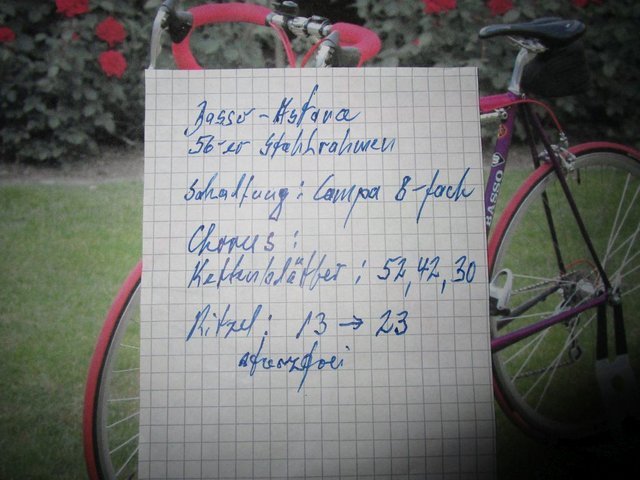 Basso - Astance
56-er Stahlrahmen
Schaltung: Campa 8-fach
Chorus:
Kettenblätter: 52, 42, 30
Ritzel: 13 → 23
sturzfrei
BASSO